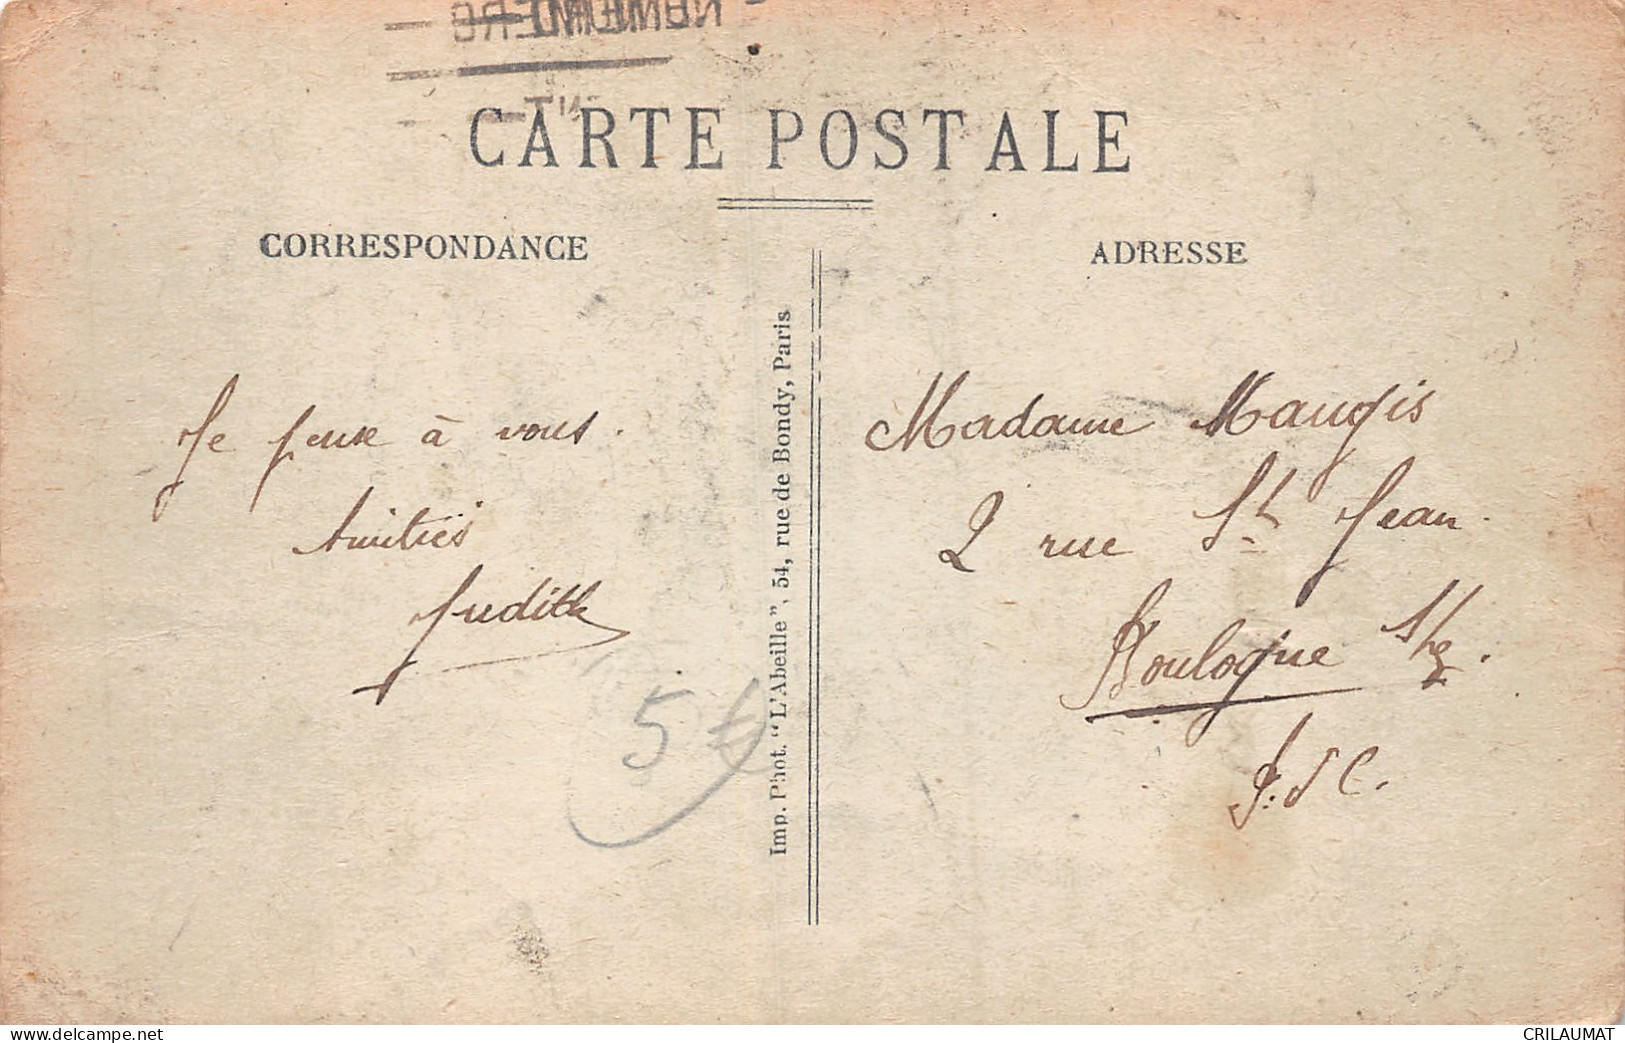 CARTE POSTALE
CORRESPONDANCE
ADRESSE
Je pense à vous.
Amitiés
Judith
5
Imp. Phot. "L'Abeille", 54, rue de Bondy, Paris
Madame Maugis
2 rue St Jean
Boulogne
P. d C.
www.delcampe.net
CRILAUMAT